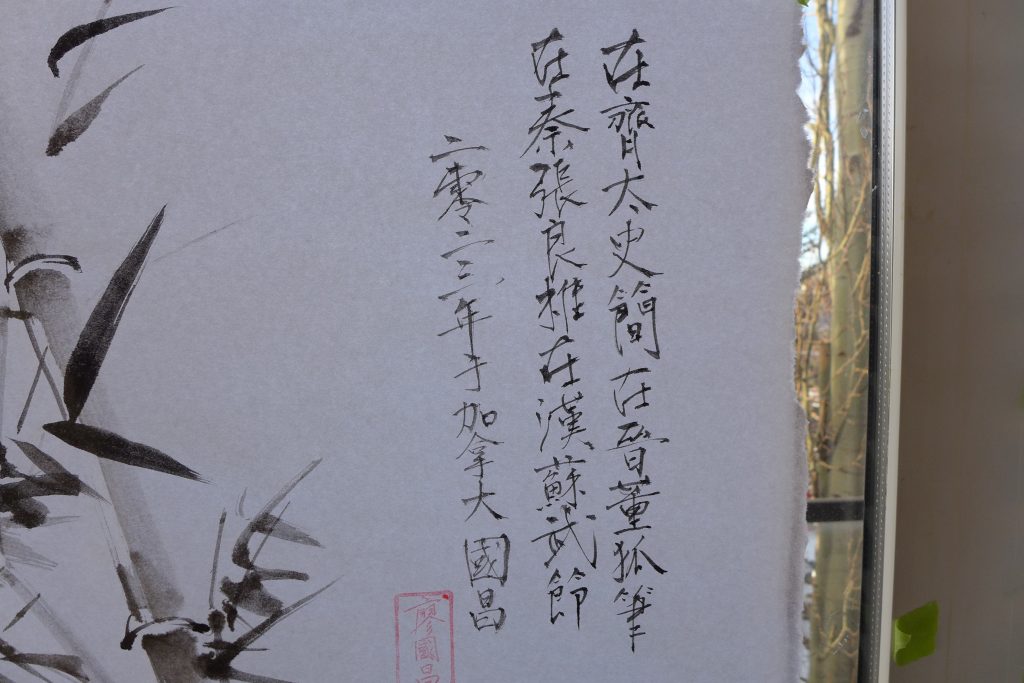 在齊太史簡在晉董狐筆
在秦張良椎在漢蘇武節
二零二三年于加拿大 國昌
廖國昌